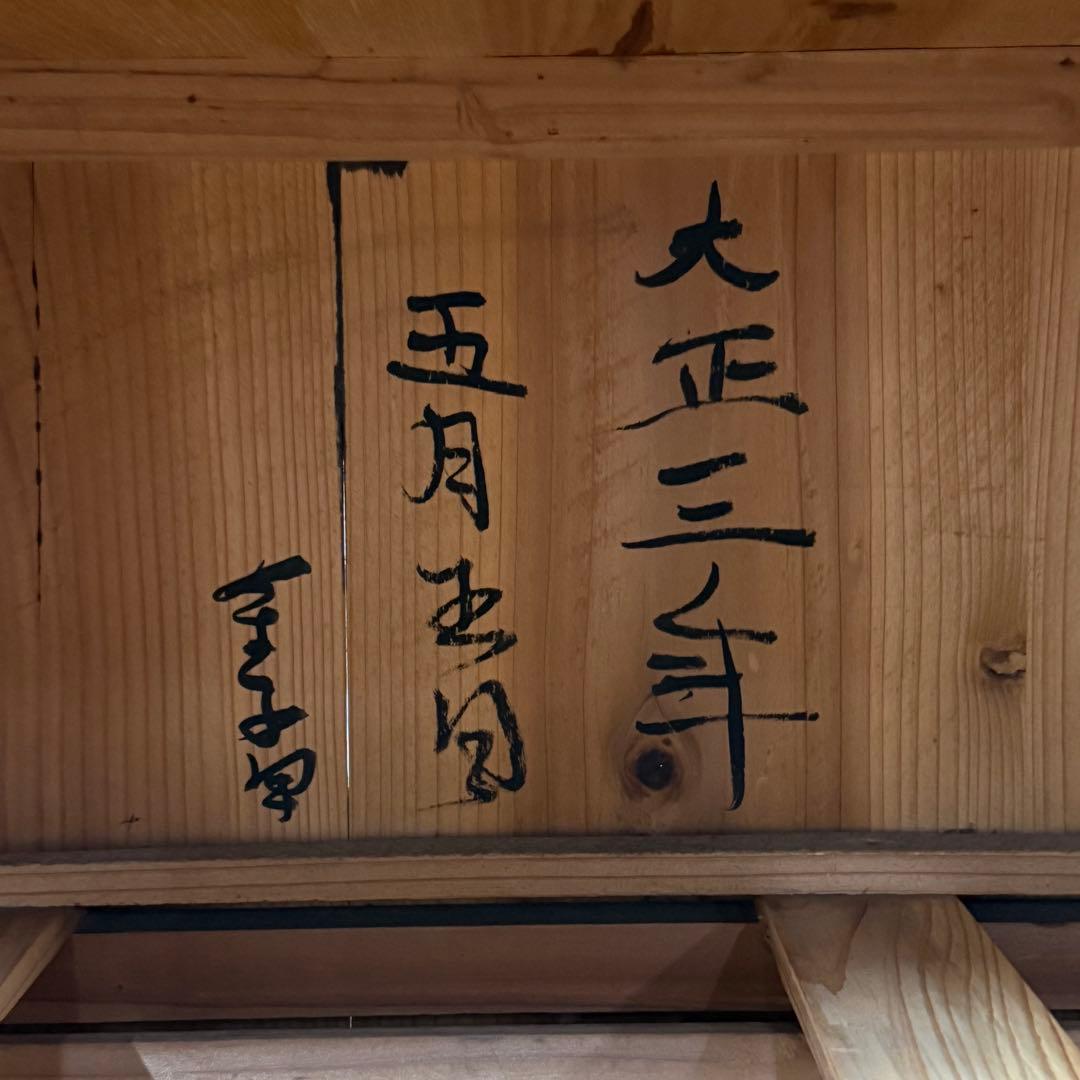 大正三年
五月五日